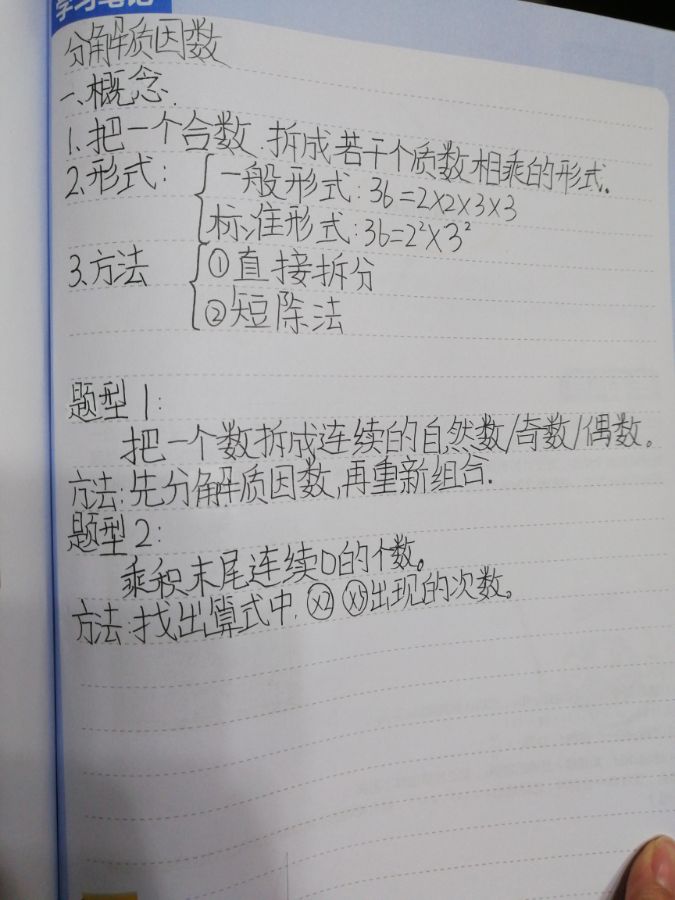 学习笔记
分解质因数
一、概念.
1.把一个合数.拆成若干个质数相乘的形式.
2.形式: 一般形式:36=2×2×3×3
标准形式:36=2²×3²
3.方法 ①直接拆分
②短除法
题型1:
把一个数拆成连续的自然数/奇数/偶数。
方法:先分解质因数,再重新组合.
题型2:
乘积末尾连续0的个数。
方法:找出算式中,×2 ×5出现的次数。